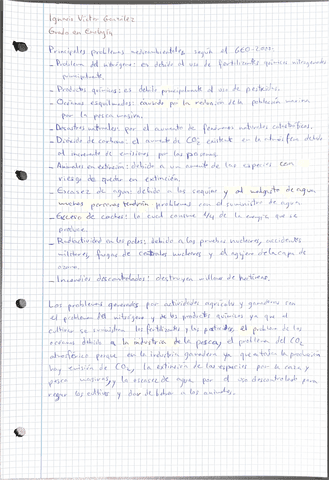 Ignacio Víctor González
Grado en Enología
Principales problemas medioambientales según el GEO-2000.
- Problema del nitrógeno: es debido al uso de fertilizantes químicos nitrogenados
principalmente.
- Productos químicos: es debido principalmente al uso de pesticidas.
- Océanos esquilmados: causado por la reducción de la población marina
por la pesca masiva.
- Desastres naturales: por el aumento de fenómenos naturales catastróficos.
- Dióxido de carbono: el aumento de CO2 en la atmósfera debido
al de emisiones por las personas.
- Animales en extinción: debido a un aumento de las especies con
riesgo de quedar en extinción.
- Escasez de agua: debido a las sequías y al de agua,
muchas personas tendrán problemas con el suministro de agua.
- Exceso de coches: lo cual consume 1/4 de la energía que se
produce.
- Radiactividad en los polos: debido a las pruebas nucleares, accidentes
militares, fugas de centrales nucleares y el agujero de la capa de
ozono.
- Incendios descontrolados: destruyen millones de hectáreas.
Los problemas generados por actividades agrícolas y ganaderas son
el problema del nitrógeno y de los productos químicos ya que al
cultivo se suministra los fertilizantes y los pesticidas, el problema de los
océanos debido a la industria de la pesca, el problema del CO2
atmosférico porque en la industria ganadera ya que a toda la producción
hay emisión de CO2, la extinción de las especies por la caza y
pesca masivas, y la escasez de agua por el uso descontrolado para
regar los cultivos y dar de beber a los animales.